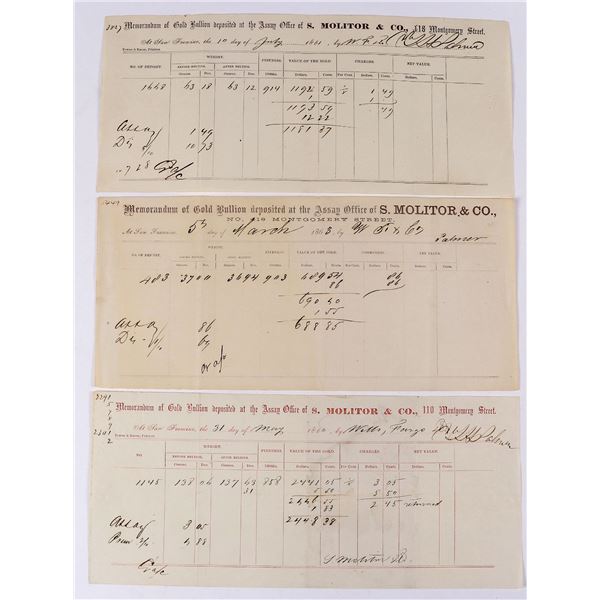 3027
Memorandum of Gold Bullion deposited at the Assay Office of S. MOLITOR & CO., 118 Montgomery Street.
At San Francisco the 10 day of July 1861, by W. F. & Co
TOWNE & BACON, Printers.
WEIGHT. FINENESS. VALUE OF THE GOLD. CHARGES. NET VALUE.
NO. OF DEPOSIT. BEFORE MELTING. AFTER MELTING.
Ounces. Dec. Ounces. Dec. 1000ths. Dollars. Cents. Per Cent. Dollars. Cents. Dollars. Cents.
1448 63 18 63 12 914 1192 59 1 49
1193 59 49
12 22
Assay 1 49 1181 37
Dis 10 73
Memorandum of Gold Bullion deposited at the Assay Office of S. MOLITOR, & CO.,
NO. 418 MONTGOMERY STREET.
At San Francisco 5th day of March 1863 by W F & Co
Palmer
NO. OF DEPOSIT. WEIGHT. FINENESS. VALUE OF THE GOLD. CHARGES. NET VALUE.
483 37 00 36 94 903 689 54 86
86 86
690 40
1 55
Assay 86 688 85
Dis
Memorandum of Gold Bullion deposited at the Assay Office of S. MOLITOR & CO., 110 Montgomery Street.
At San Francisco, the 31 day of May 1860, by Wells, Fargo & Co
TOWNE & BACON, Printers.
WEIGHT. FINENESS. VALUE OF THE GOLD. CHARGES. NET VALUE.
NO. BEFORE MELTING. AFTER MELTING.
Ounces. Dec. Ounces. Dec. 1000ths. Dollars. Cents. Per Cent. Dollars. Cents. Dollars. Cents.
1145 138 04 137 63 858 2441 05 3 05
31 5 50 5 50
2446 55 2 45 returned
1 83
Assay 3 05 2448 38
Prem 4 88
S Molitor & Co